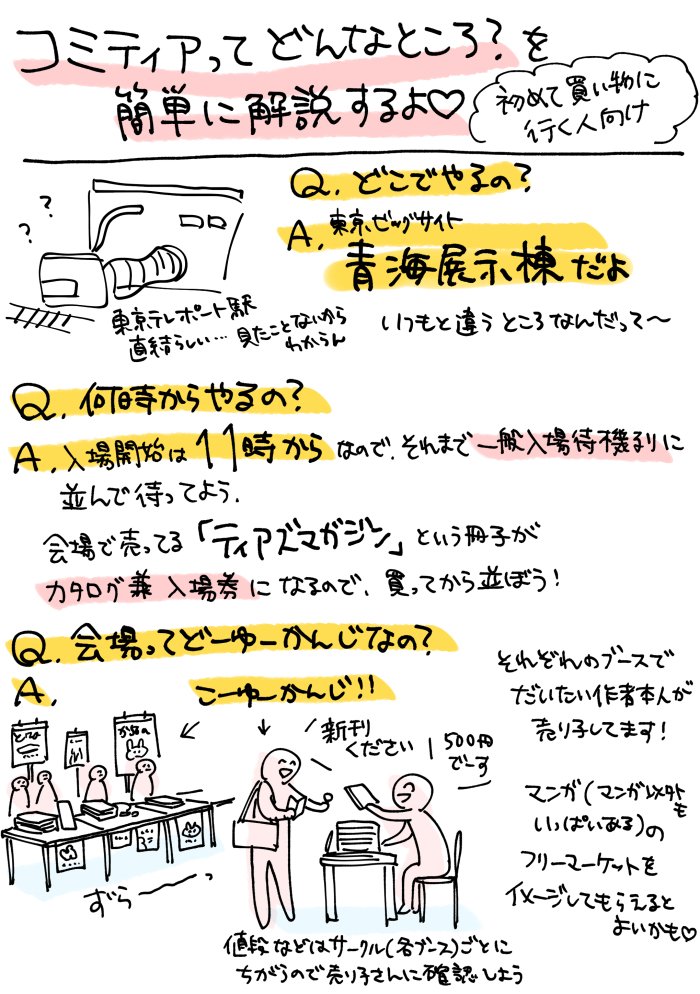 コミティアってどんなところ?を
簡単に解説するよ♡
初めて買い物に
行く人向け
Q.どこでやるの?
A.東京ビッグサイト
青海展示棟だよ
? ?
東京テレポート駅
直結らしい…見たことないから
わからん
いつもと違うところなんだって〜
Q.何時からやるの?
A.入場開始は11時からなので、それまで一般入場待機列に
並んで待ってよう.
会場で売ってる「ティアズマガジン」という冊子が
カタログ兼入場券になるので、買ってから並ぼう!
Q.会場ってどーゆーかんじなの?
A.こーゆーかんじ!!
それぞれのブースで
だいたい作者本人が
売り子してます!
新刊
ください
500円
でーす
ずらーーっ
マンガ(マンガ以外も
いっぱいある)の
フリーマーケットを
イメージしてもらえると
よいかも♡
値段などはサークル(各ブース)ごとに
ちがうので売り子さんに確認しよう